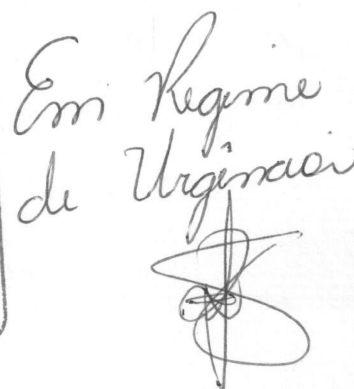 Em Regime
de Urgência